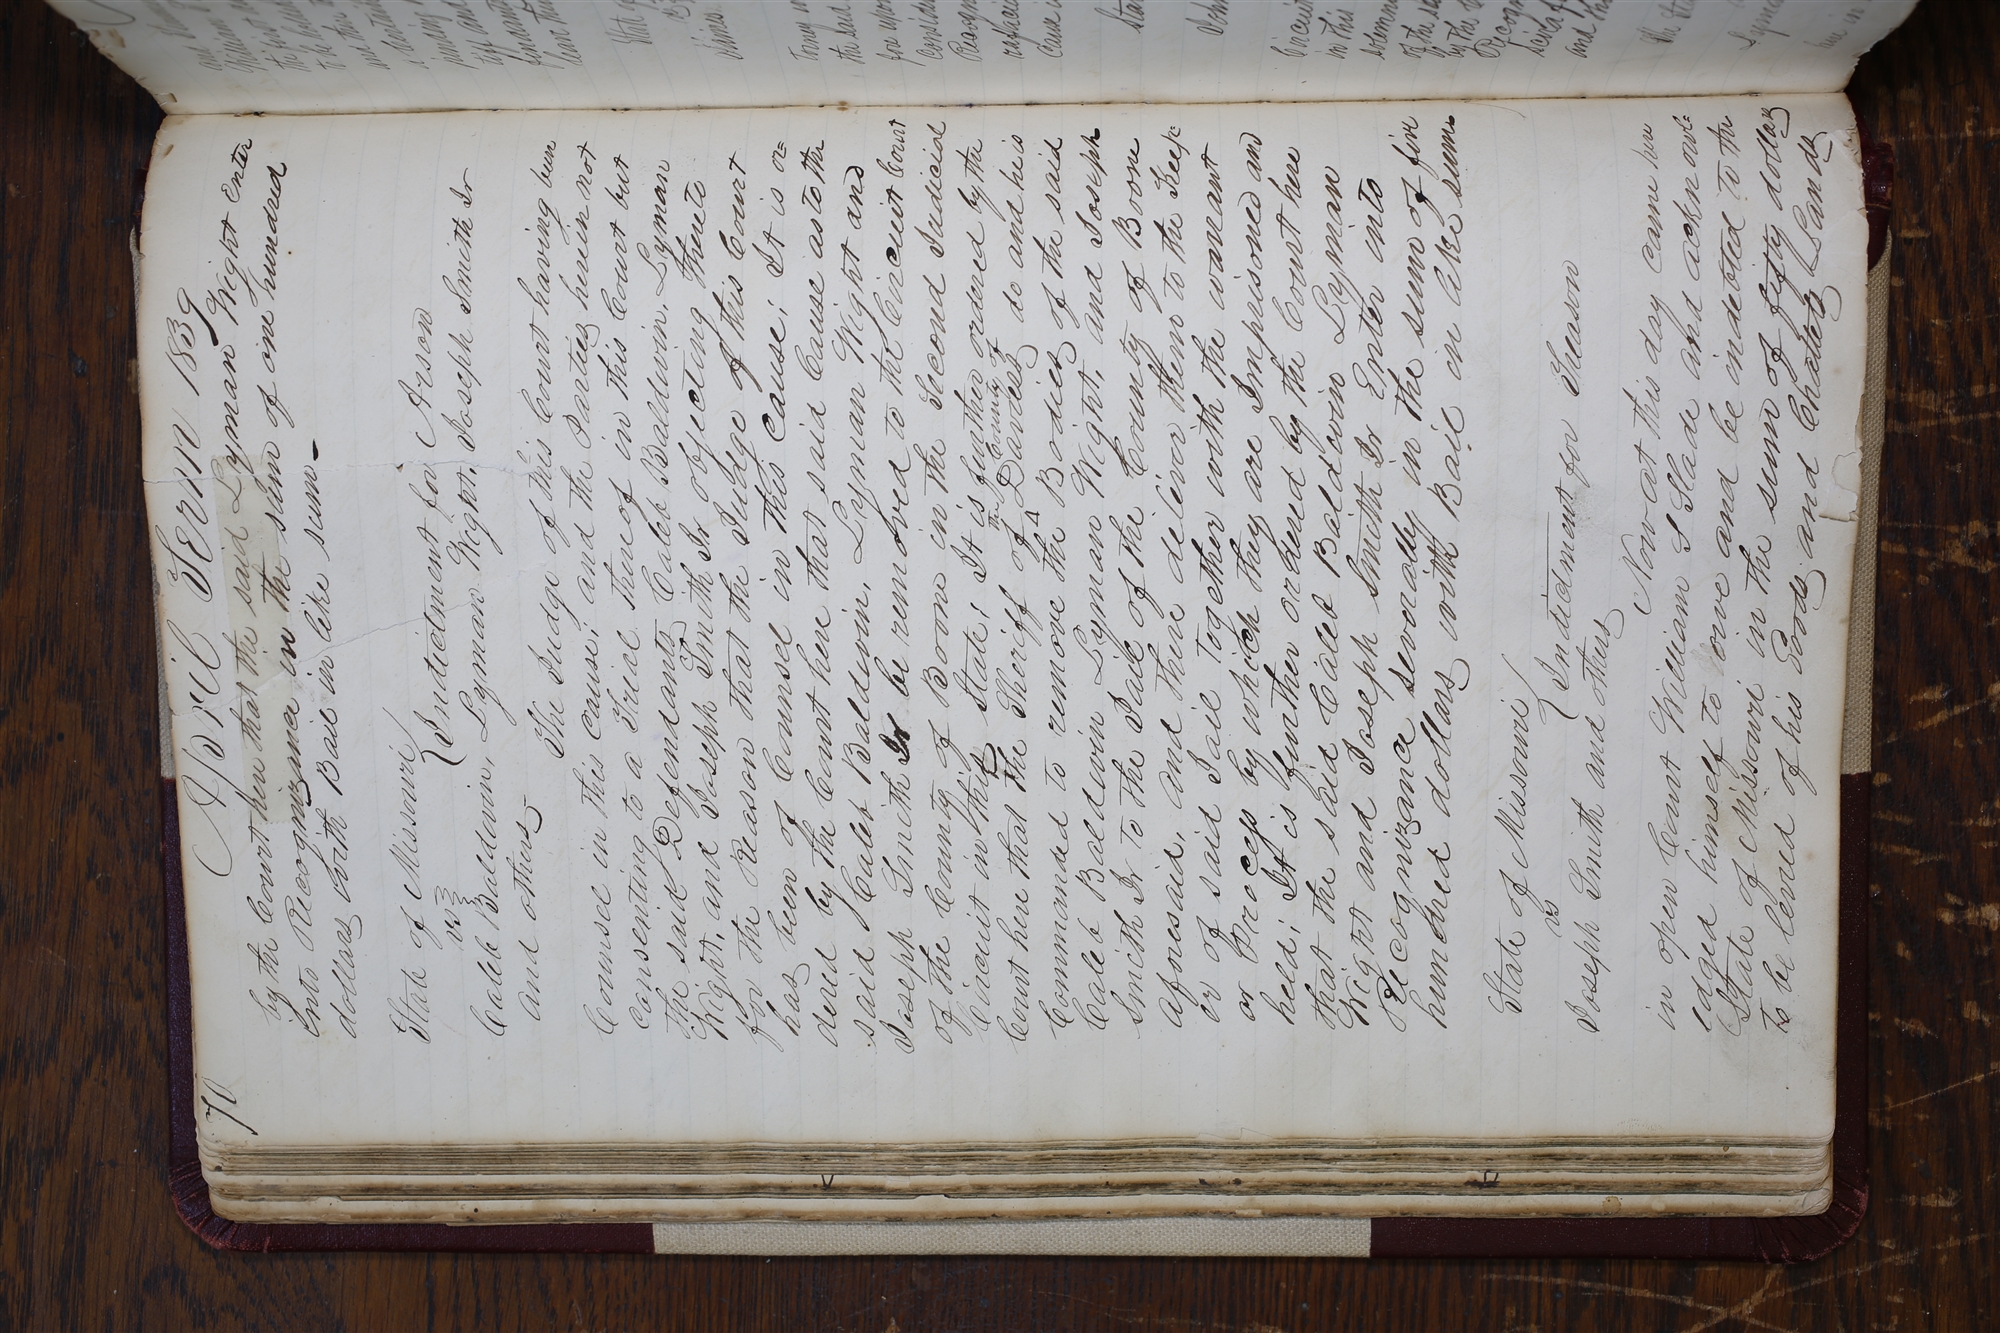 70
April Term 1839
by the Court here that the said Lyman Wight Enter
into Recognizance in the sum of one hundred
dollars with Bail in like sum -
State of Missouri
vs
Indictment for Arson
Caleb Baldwin, Lyman Wight, Joseph Smith Jr
and others
The Judge of this Court having been
Counsel in this cause; and the Parties herein not
consenting to a Trial thereof in this Court but
the said Defendants Caleb Baldwin, Lyman
Wight, and Joseph Smith Jr objecting thereto
for the Reason that the Judge of this Court
has been of Counsel in this Cause; It is or=
dered by the Court here that said Cause as to the
said Caleb Baldwin, Lyman Wight and
Joseph Smith Jr be removed to the Circuit Court
of the County of Boone in the Second Judicial
Circuit in this State; It is further ordered by the
Court here that the Sheriff of the County of Daviess do and he is
Commanded to remove the Bodies of the said
Caleb Baldwin Lyman Wight, and Joseph
Smith Jr to the Jail of the County of Boone
aforesaid, and there deliver them to the Keep=
er of said Jail together with the warrant
or Process by which they are Imprisoned and
held; It is further ordered by the Court here
that the said Caleb Baldwin Lyman
Wight and Joseph Smith Jr Enter into
Recognizance severally in the sum of five
hundred dollars with Bail in like sum.
State of Missouri
vs
Indictment for Treason
Joseph Smith and others
Now at this day came here
in open Court William S Slade and acknowl=
edged himself to owe and be indebted to the
State of Missouri in the sum of fifty dollars
to be levied of his Goods and Chattels Lands